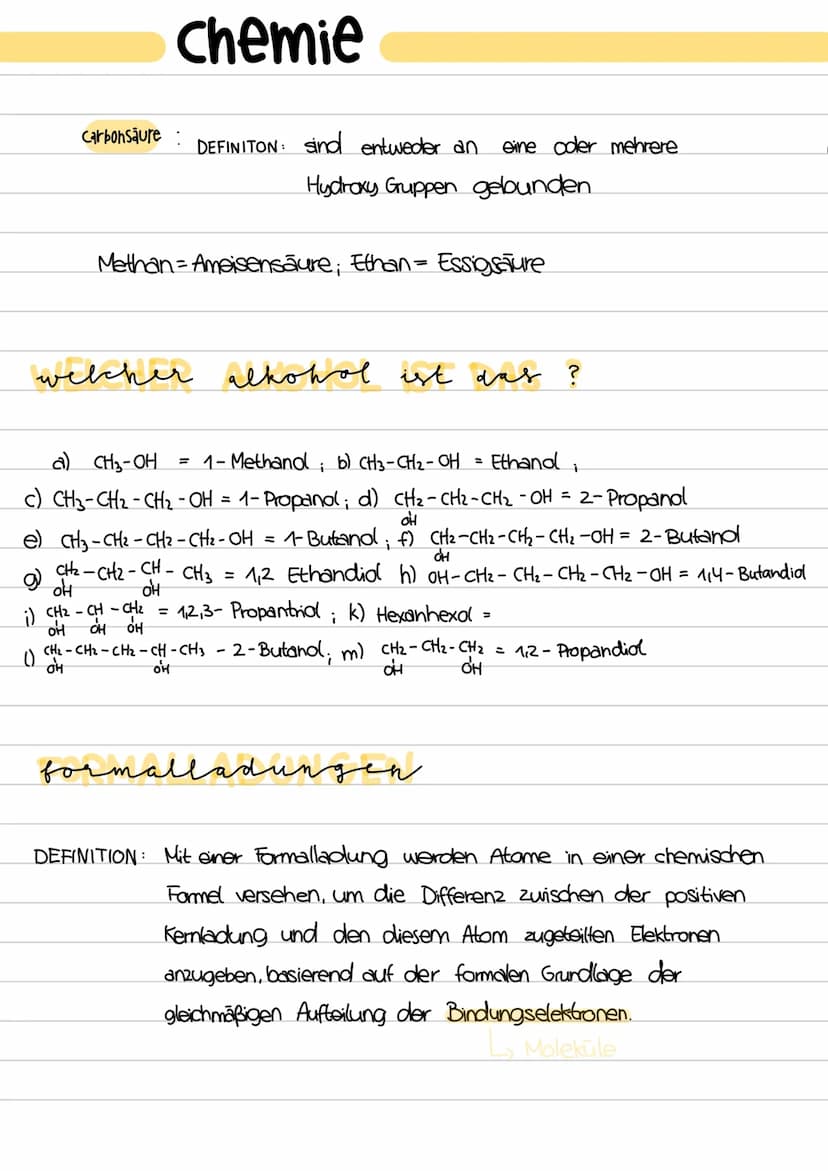 Chemie
Carbonsäure : DEFINITON: sind entweder an eine oder mehrere
Hydroxy Gruppen gebunden
Methan = Ameisensäure; Ethan = Essigsäure
WELCHER ALKOHOL IST DAS ?
a) CH₃-OH = 1-Methanol ; b) CH₃-CH₂-OH = Ethanol ;
c) CH₃-CH₂-CH₂-OH = 1-Propanol; d) CH₂-CH₂-CH₂-OH = 2-Propanol
OH
e) CH₃-CH₂-CH₂-CH₂-OH = 1-Butanol ; f) CH₂-CH₂-CH₂-CH₂-OH = 2-Butanol
OH
g) CH₂-CH₂-CH-CH₃ = 1,2 Ethandiol h) OH-CH₂-CH₂-CH₂-CH₂-OH = 1,4-Butandiol
OH OH
i) CH₂-CH-CH₂ = 1,2,3-Propantriol ; k) Hexanhexol =
OH OH OH
l) CH₂-CH₂-CH₂-CH-CH₃ - 2-Butanol; m) CH₂-CH₂-CH₂ = 1,2-Propandiol
OH OH OH OH
FORMALLADUNGEN
DEFINITION: Mit einer Formalladung werden Atome in einer chemischen
Formel versehen, um die Differenz zwischen der positiven
Kernladung und den diesem Atom zugeteilten Elektronen
anzugeben, basierend auf der formalen Grundlage der
gleichmäßigen Aufteilung der Bindungselektronen.
↳ Moleküle